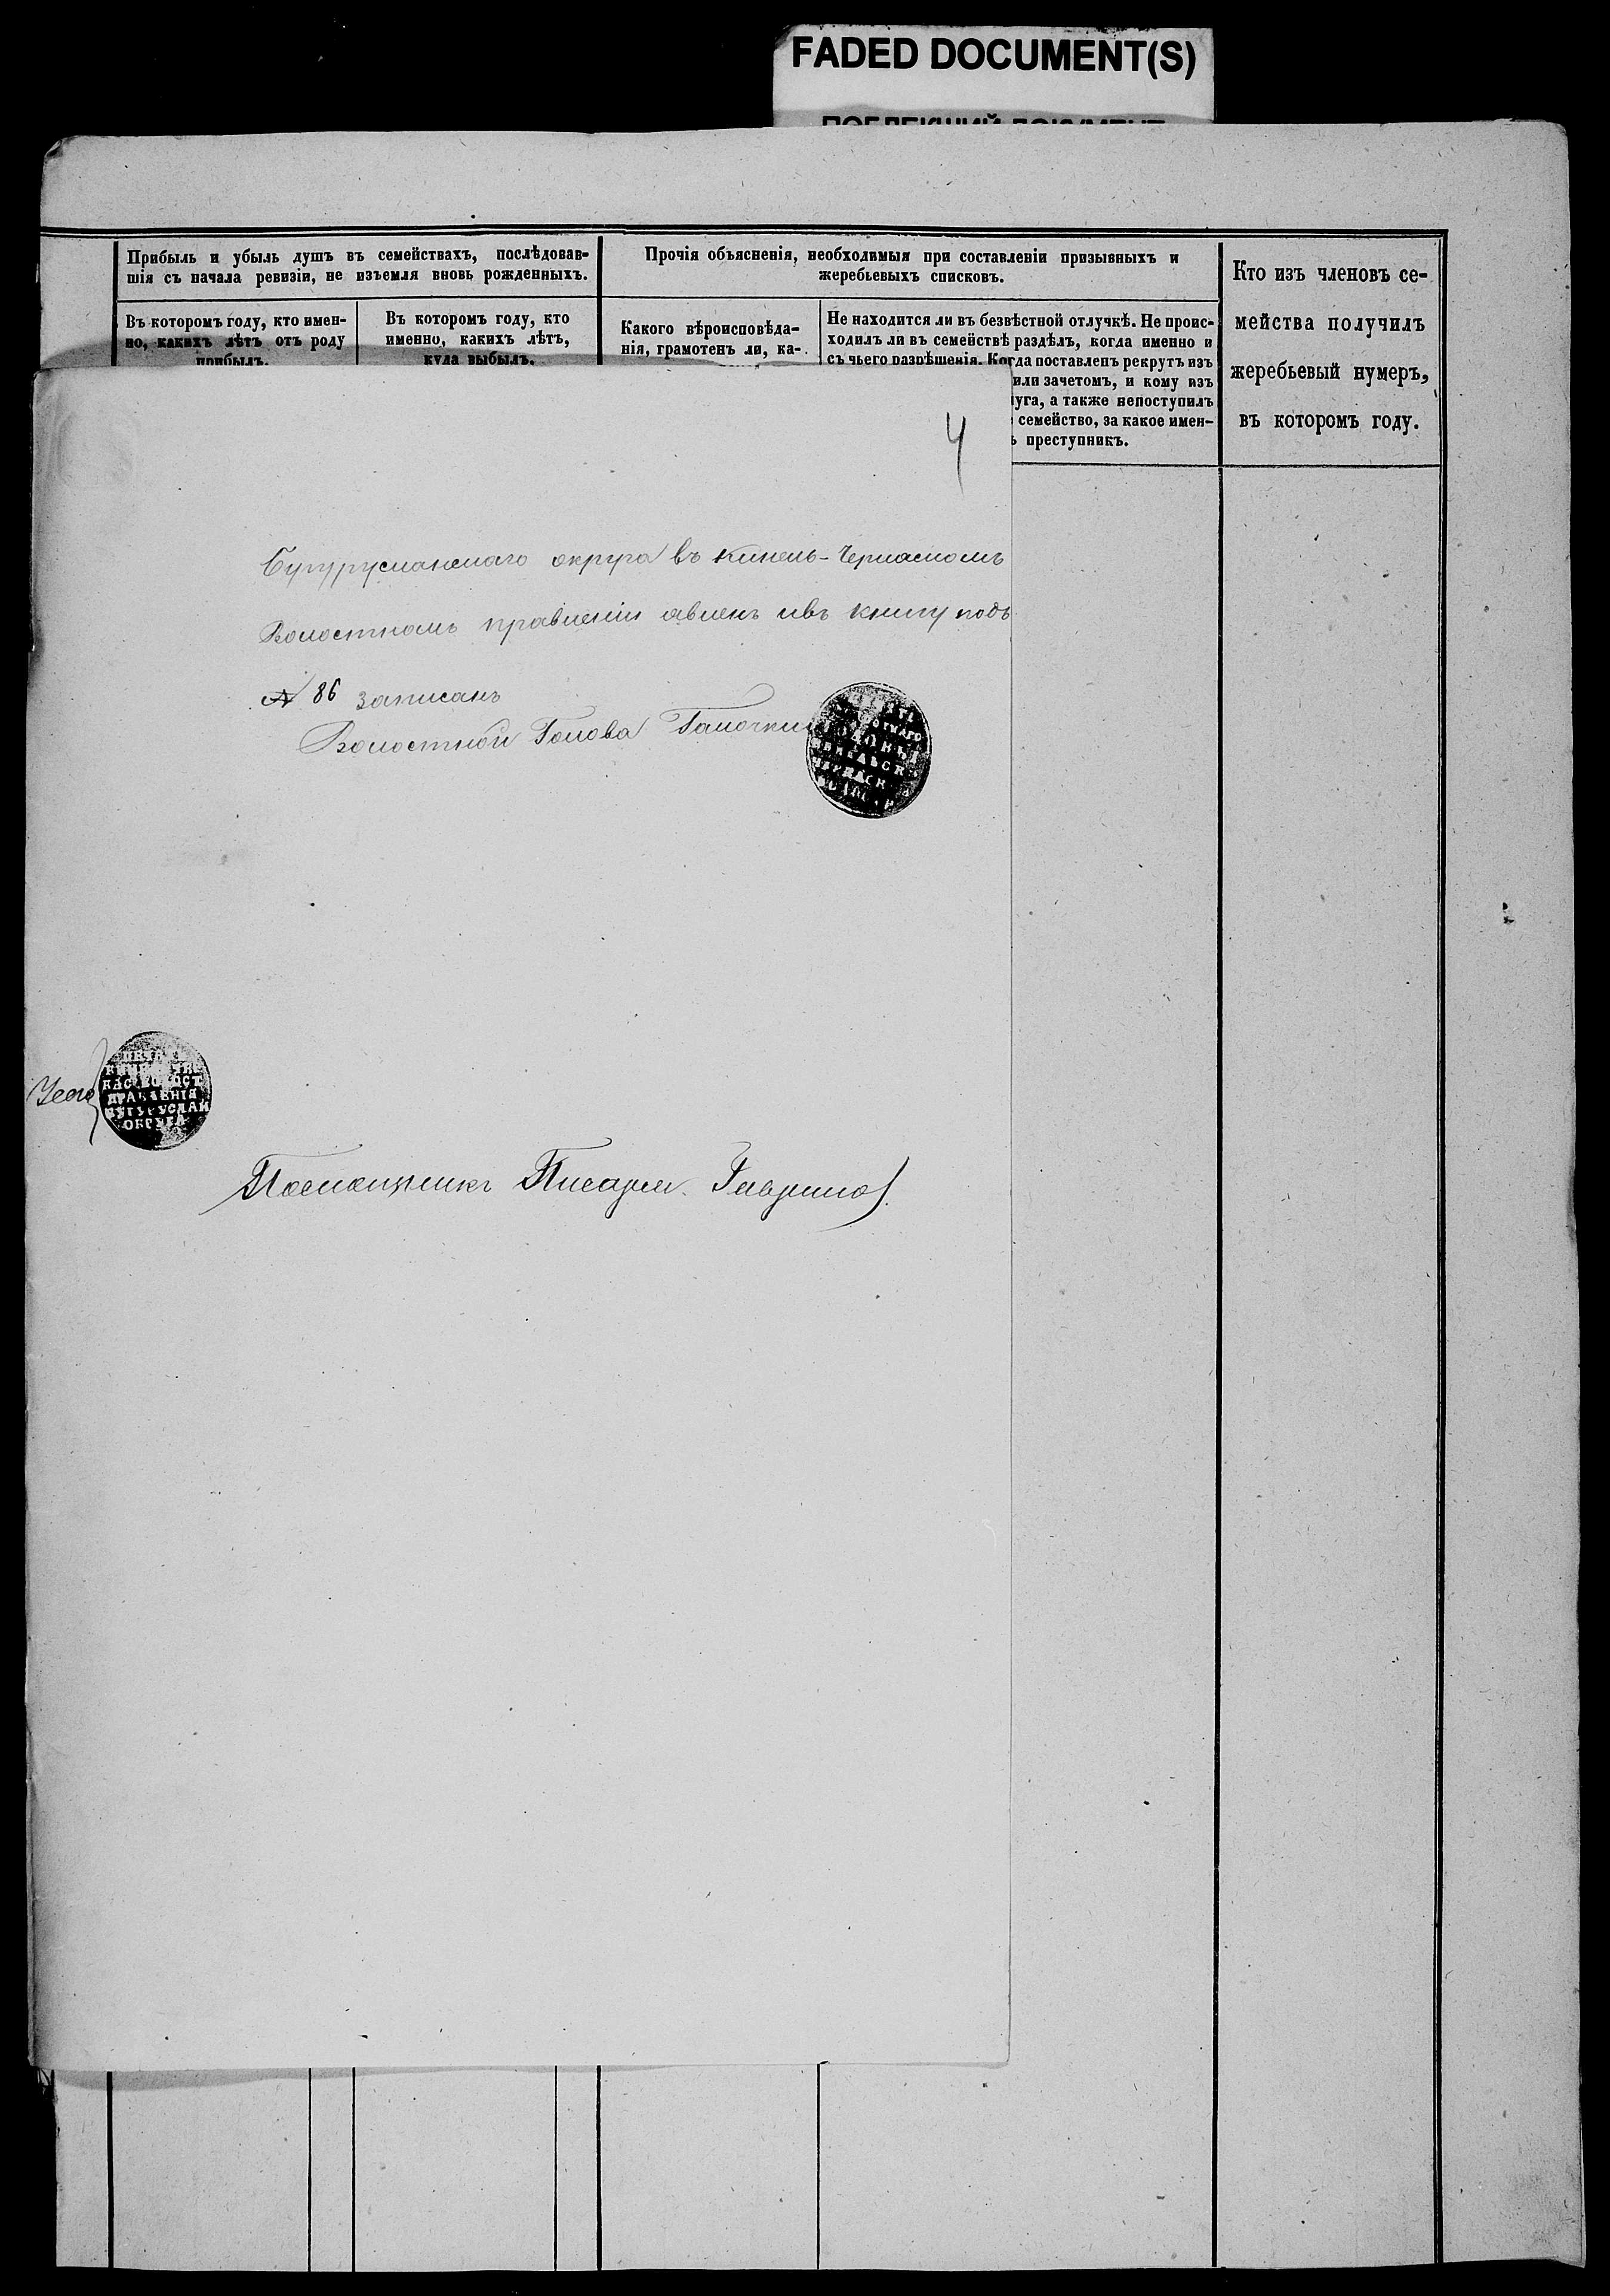 FADED DOCUMENT(S)
Прибыль и убыль душъ въ семействахъ, послѣдовав-
шія съ начала ревизіи, не изъемля вновь рожденныхъ.
Въ которомъ году, кто имен-
но, какихъ лѣтъ отъ роду
прибылъ.
Въ которомъ году, кто
именно, какихъ лѣтъ,
куда выбылъ.
Прочія объясненія, необходимыя при составленіи призывныхъ и
жеребьевыхъ списковъ.
Какого вѣроисповѣда-
нія, грамотенъ ли, ка-
Не находится ли въ безвѣстной отлучкѣ. Не проис-
ходилъ ли въ семействѣ раздѣлъ, когда именно и
съ чьего разрѣшенія. Когда поставленъ рекрутъ изъ
или зачетомъ, и кому изъ
уга, а также непоступилъ
семейство, за какое имен-
ъ преступникъ.
Кто изъ членовъ се-
мейства получилъ
жеребьевый нумеръ,
въ которомъ году.
4
Бугурусланскаго округа въ Кинель-Черкаскомъ
Волостномъ правленіи явленъ ивъ книгу подъ
№ 86 записанъ
Волостной Голова
ПЕЧАТЬ
ПРАВЛЕНІЯ
БУГУРУСЛАН
ОКРУГА
Помощникъ Писаря Гаврилов